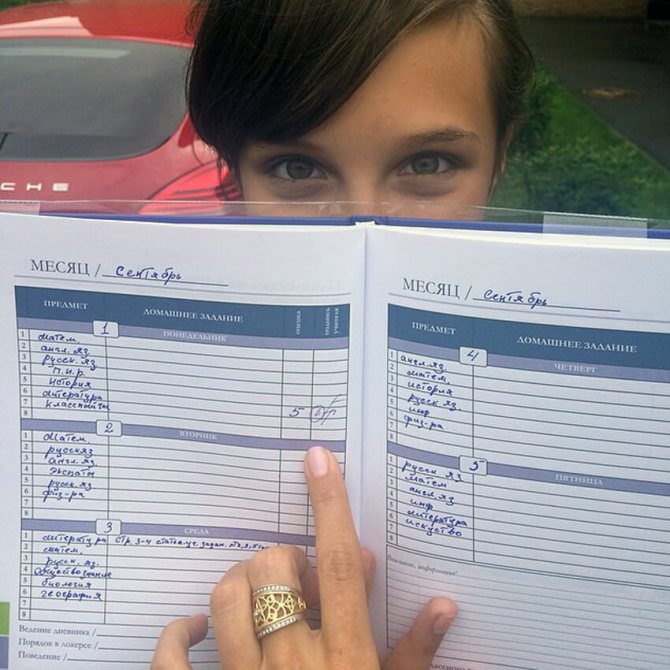 CHE
МЕСЯЦ / сентябрь
ПРЕДМЕТ ДОМАШНЕЕ ЗАДАНИЕ оценка подпись учителя
1 ПОНЕДЕЛЬНИК
1 матем.
2 англ. яз.
3 русск. яз
4 П.И.Р.
5 история
6 литература
7 классный час 5
8
2 ВТОРНИК
1 матем.
2 русск яз
3 англ. яз
4
5 русск. яз
6 физ-ра
7
8
3 СРЕДА
1 литература стр. 3-4 статья уч. задан.
2 матем.
3 русск. яз.
4 обществознание
5 биология
6 география
7
8
Ведение дневника /
Порядок в локерсе /
Поведение /
МЕСЯЦ / сентябрь
ПРЕДМЕТ ДОМАШНЕЕ ЗАДАНИЕ
4 ЧЕТВЕРГ
1 англ. яз.
2 матем.
3 история
4 русск яз.
5 инф
6 физ-ра
7
8
5 ПЯТНИЦА
1 русск. яз
2 матем
3 англ. яз
4 инф
5 литература
6 искусство
7
8
Внимание, информация!